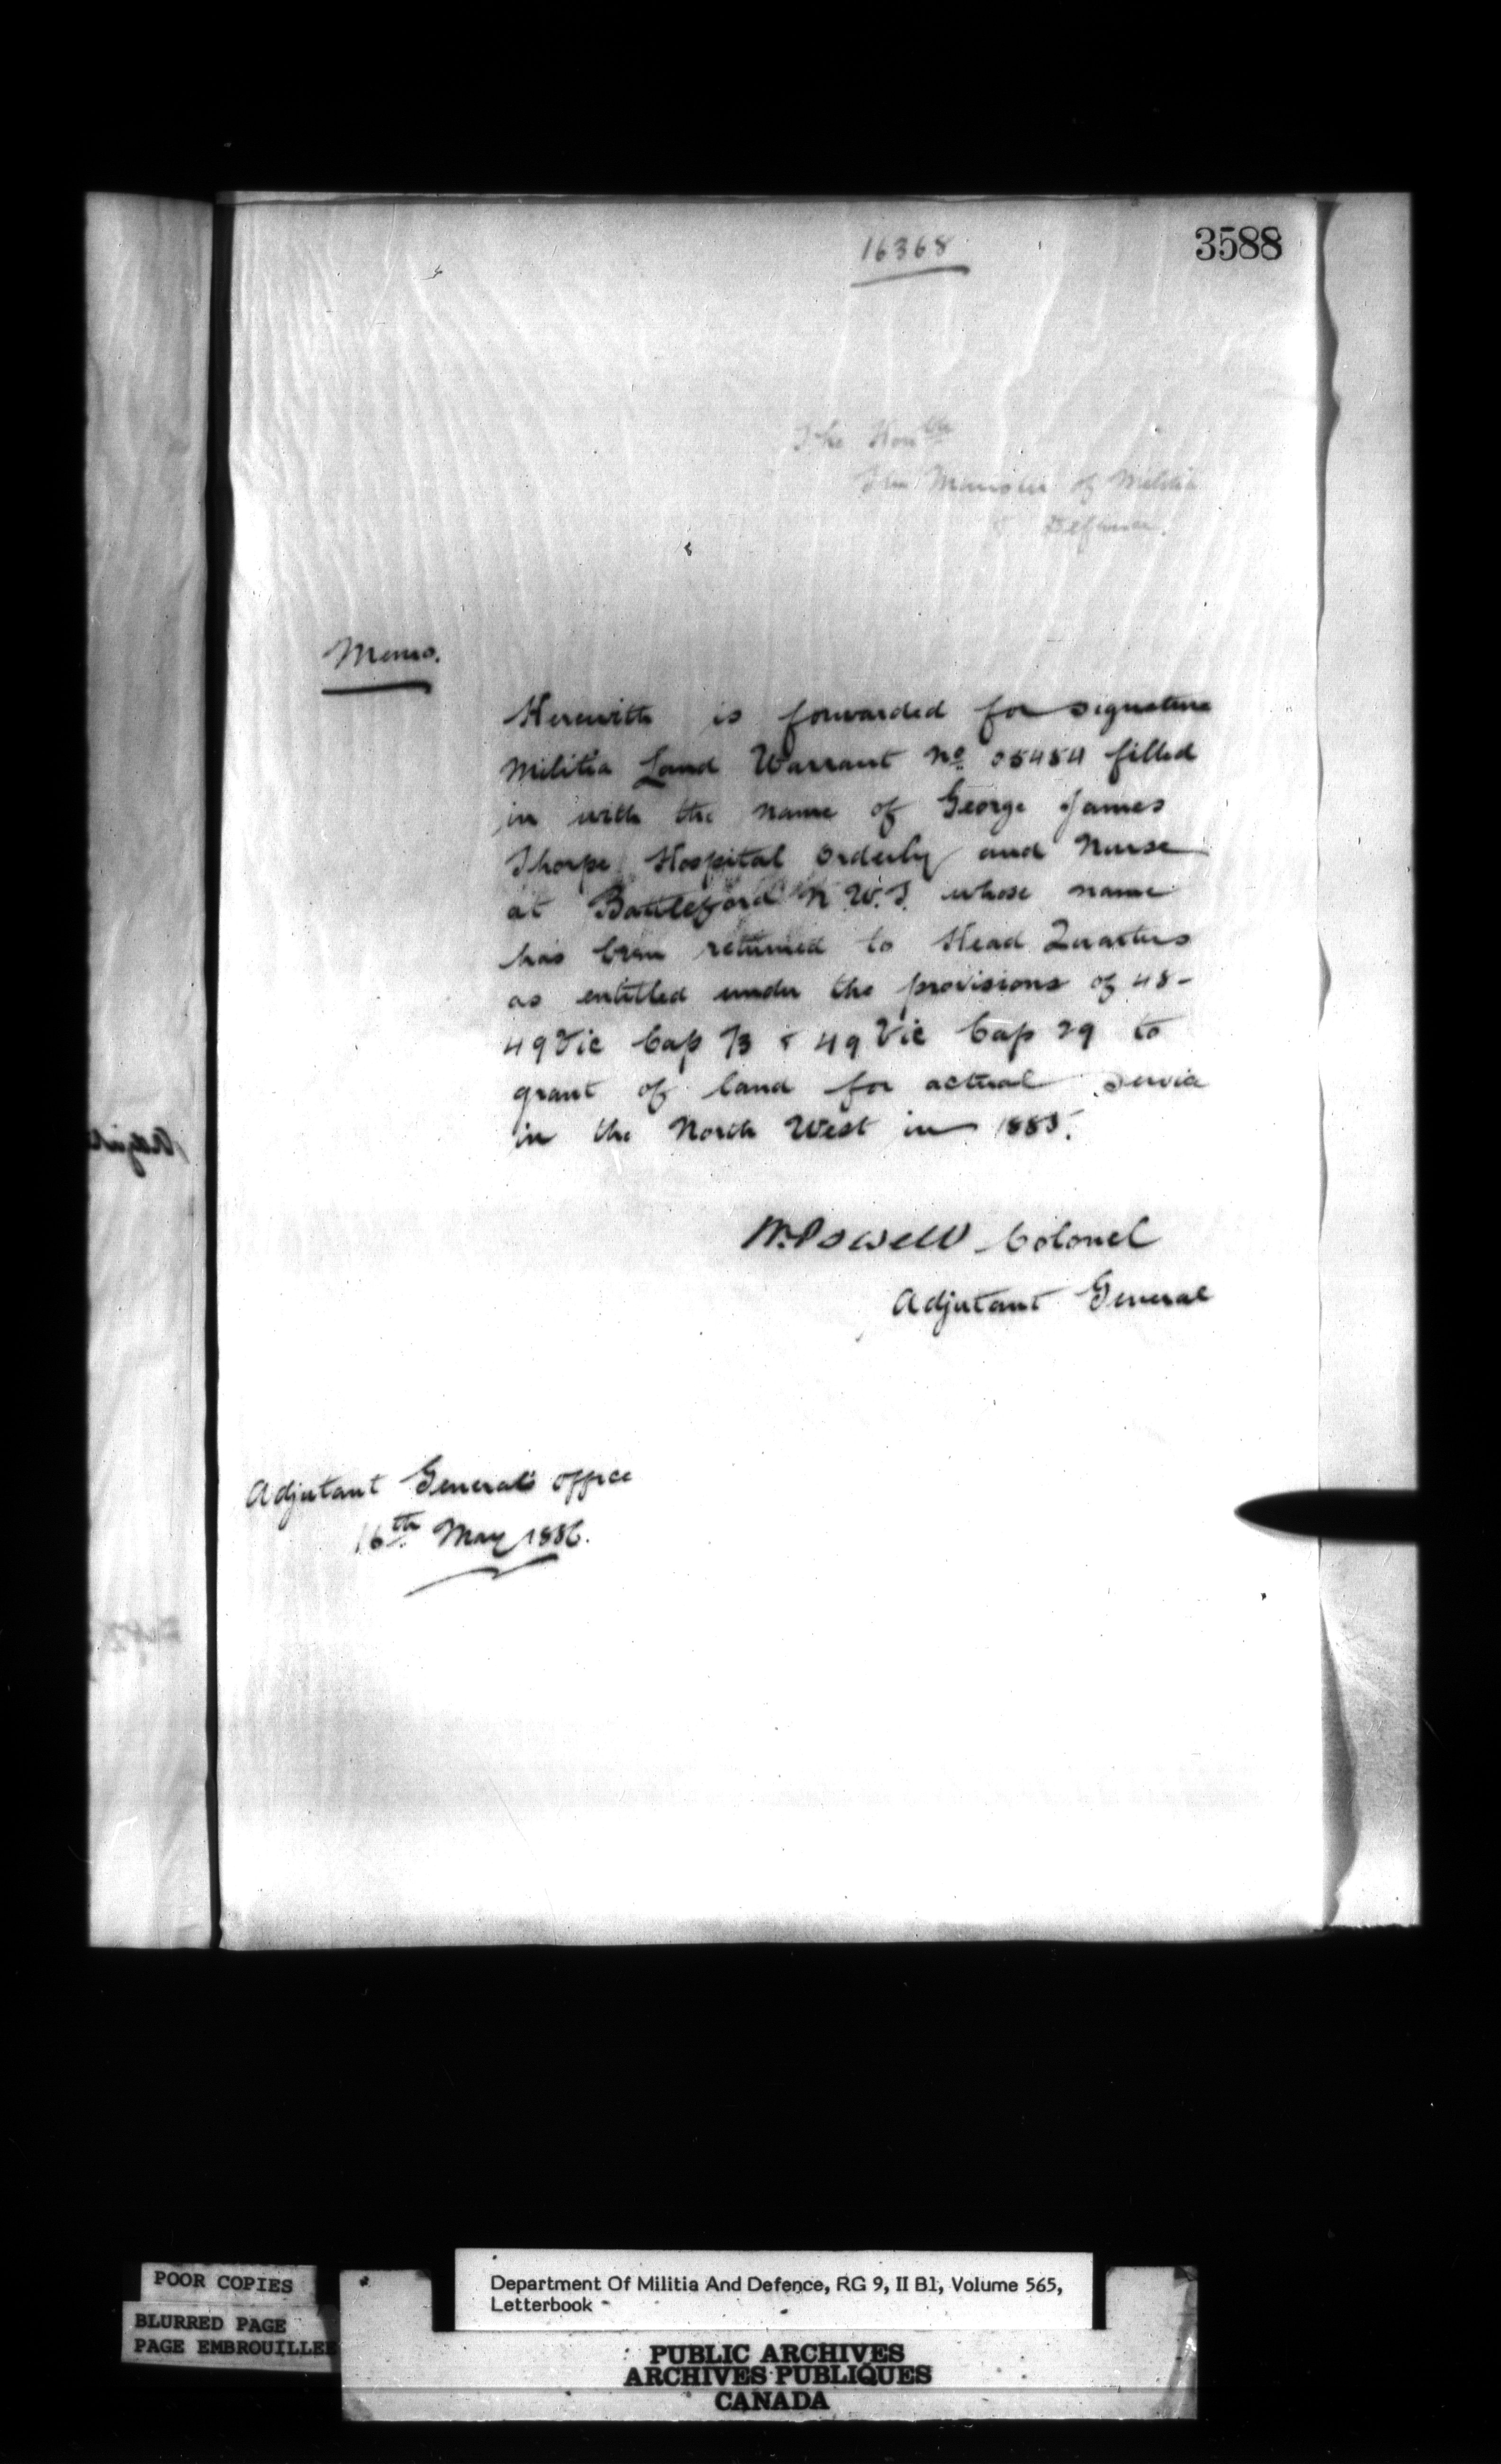 16368
3588
The Honble
The Minister of Militia
& Defence.
Memo.
Herewith is forwarded for signature
Militia Land Warrant No 05454 filled
in with the name of George James
Thorpe Hospital Orderly and Nurse
at Battleford N.W.T. whose name
has been returned to Head Quarters
as entitled under the provisions of 48-
49 Vic Cap 73 & 49 Vic Cap 29 to
grant of land for actual service
in the North West in 1885.
W. Powell Colonel
Adjutant General
Adjutant General's Office
16th May 1886.
POOR COPIES
BLURRED PAGE
PAGE EMBROUILLEE
Department Of Militia And Defence, RG 9, II B1, Volume 565,
Letterbook
PUBLIC ARCHIVES
ARCHIVES PUBLIQUES
CANADA